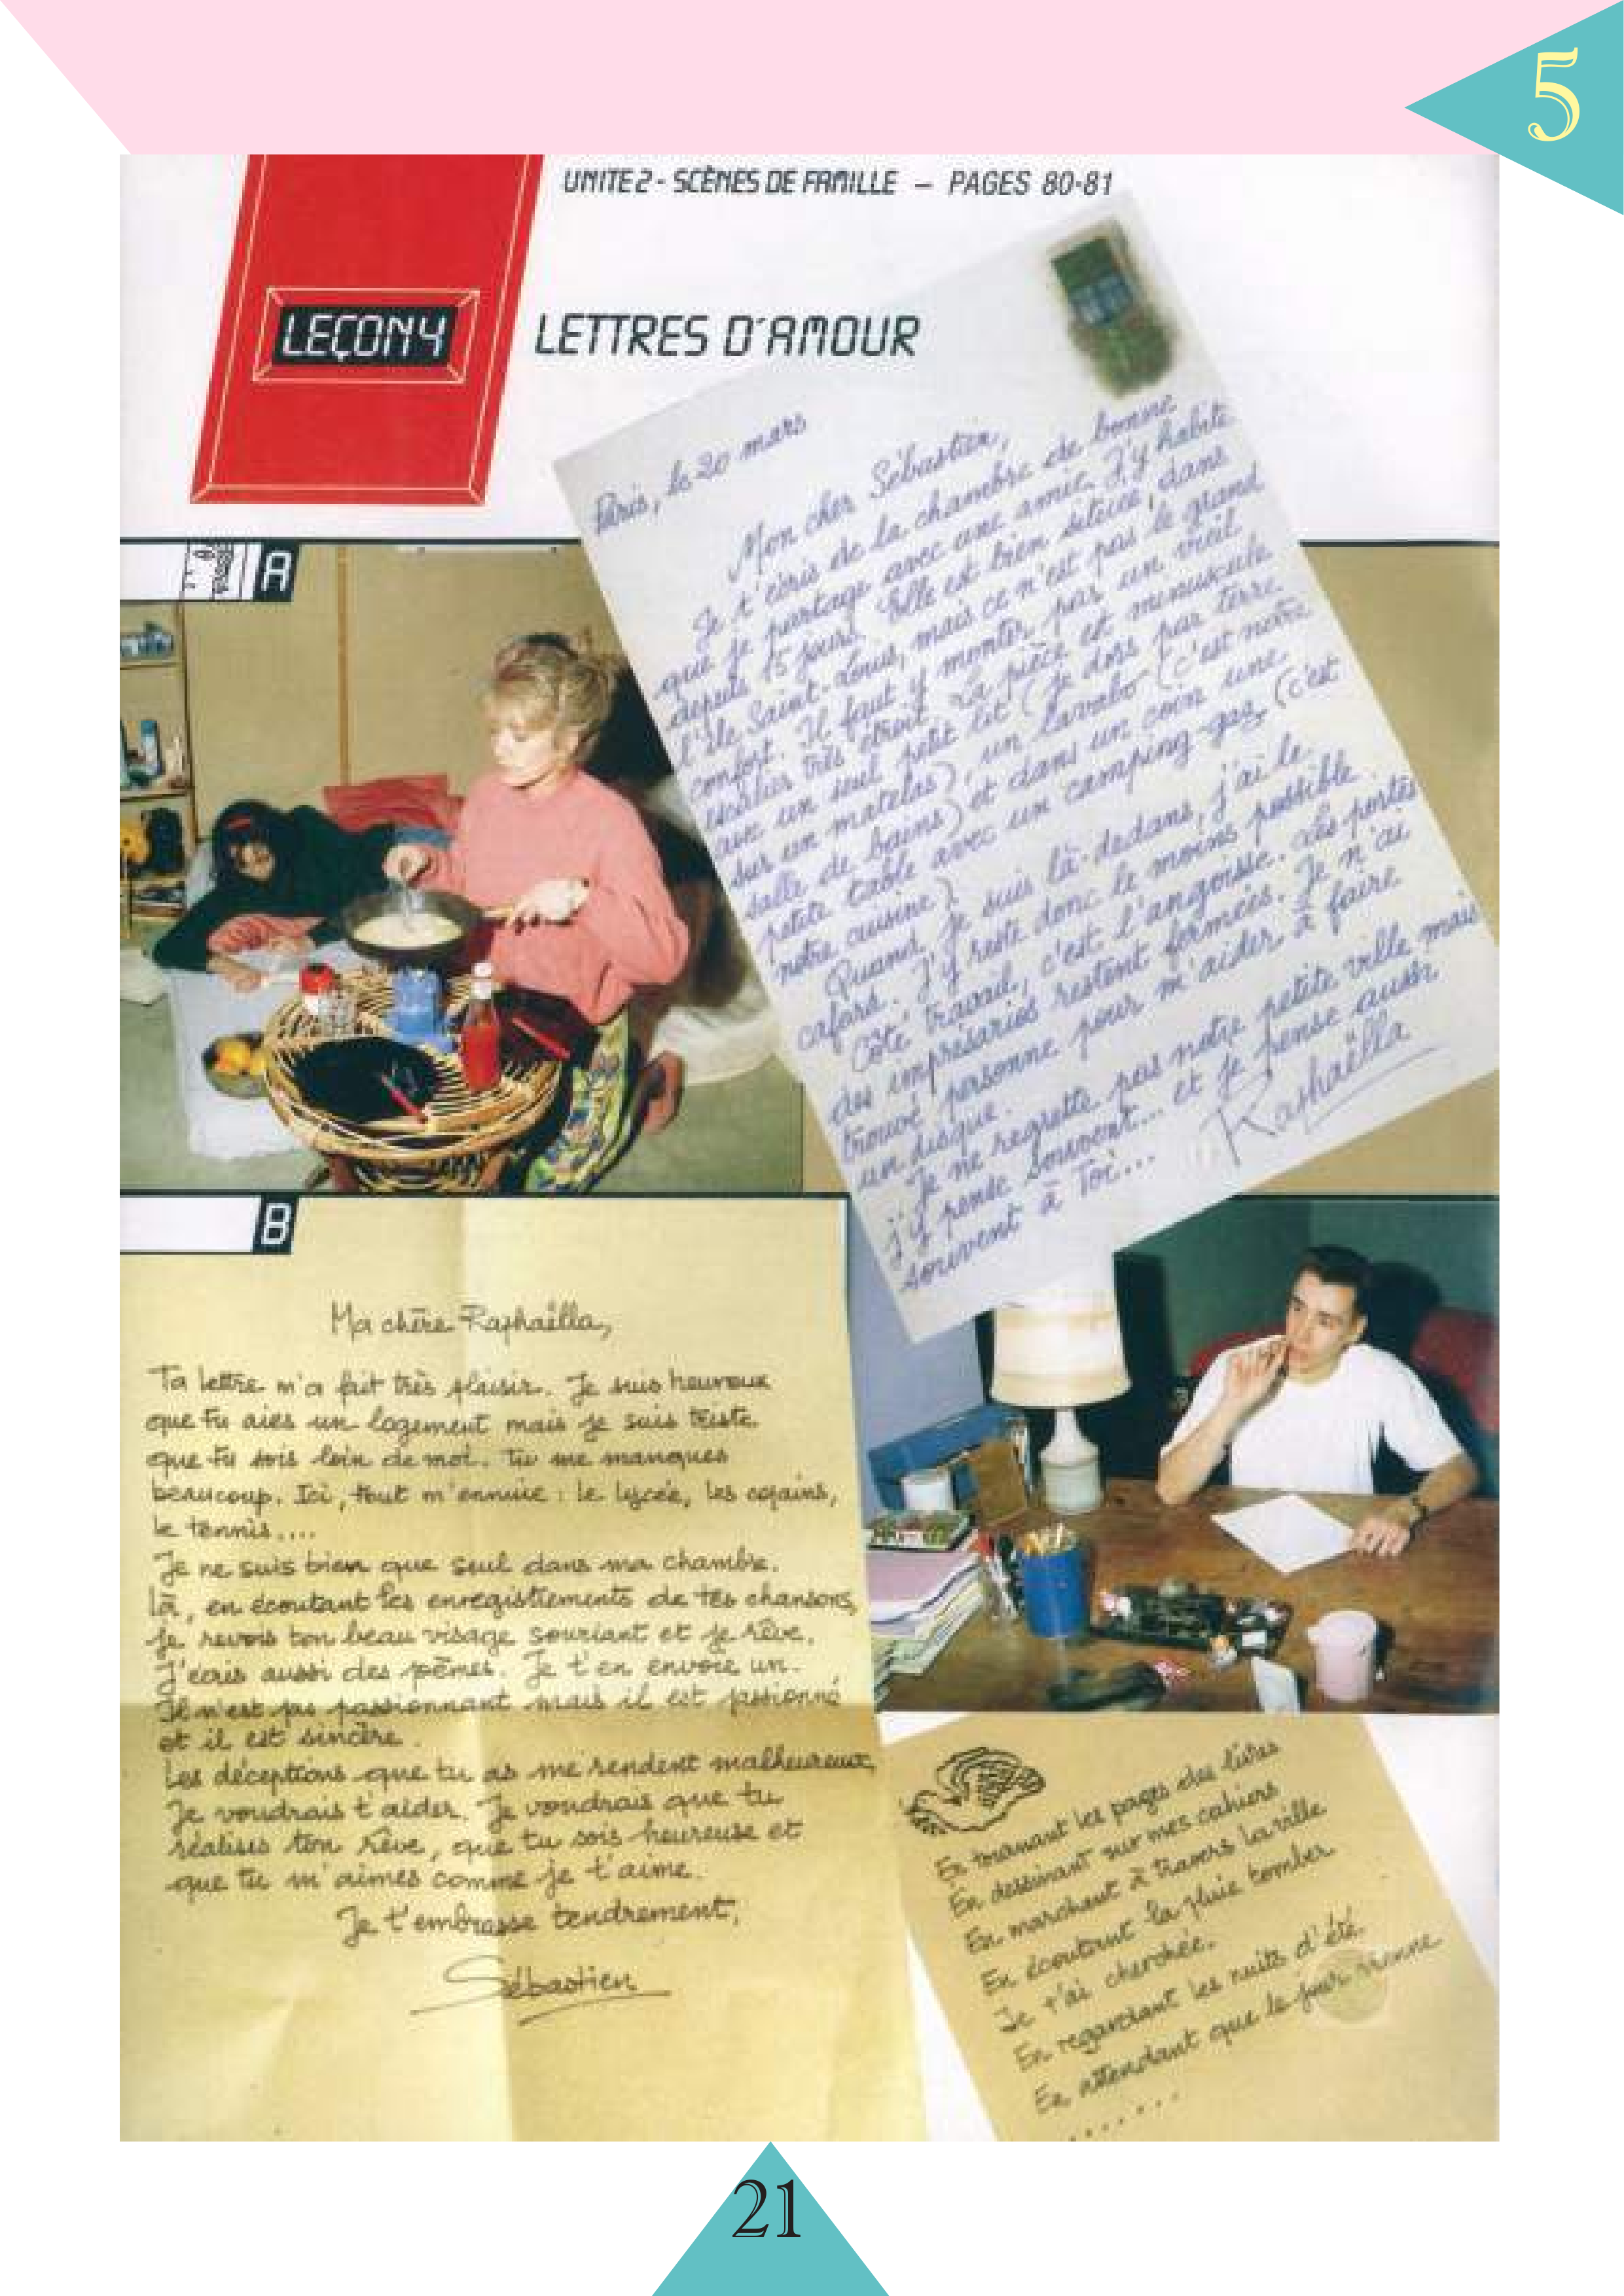 5
UNITE 2 - SCÈNES DE FAMILLE – PAGES 80-81
LEÇON 4
LETTRES D'AMOUR
A
Paris, le 20 mars
Mon cher Sébastien,
Je t'écris de la chambre de bonne
que je partage avec une amie. J'y habite
depuis 15 jours. Elle est bien située, dans
l'île Saint-Louis, mais ce n'est pas le grand
confort. Il faut y monter par un vieil
escalier très étroit. La pièce est minuscule
avec un seul petit lit (je dors par terre
sur un matelas), un lavabo (c'est notre
salle de bains) et dans un coin une
petite table avec un camping-gaz (c'est
notre cuisine)
Quand je suis là-dedans, j'ai le
cafard. J'y reste donc le moins possible.
Côté travail, c'est l'angoisse. Les portes
des imprésarios restent fermées. Je n'ai
trouvé personne pour m'aider à faire
un disque.
Je ne regrette pas notre petite ville mais
j'y pense souvent... et je pense aussi
souvent à Toi...
Raphaëlla
B
Ma chère Raphaëlla,
Ta lettre m'a fait très plaisir. Je suis heureux
que tu aies un logement mais je suis triste
que tu sois loin de moi. Tu me manques
beaucoup. Ici, tout m'ennuie : le lycée, les copains,
le tennis....
Je ne suis bien que seul dans ma chambre.
Là, en écoutant les enregistrements de tes chansons,
je revois ton beau visage souriant et je rêve.
J'écris aussi des poèmes. Je t'en envoie un.
Il n'est pas passionnant mais il est passionné
et il est sincère.
Les déceptions que tu as me rendent malheureux.
Je voudrais t'aider. Je voudrais que tu
réalises ton rêve, que tu sois heureuse et
que tu m'aimes comme je t'aime.
Je t'embrasse tendrement,
Sébastien
En tournant les pages des livres
En dessinant sur mes cahiers
En marchant à travers la ville
En écoutant la pluie tomber
Je t'ai cherchée.
En regardant les nuits d'été
En attendant que le jour vienne
.......
21